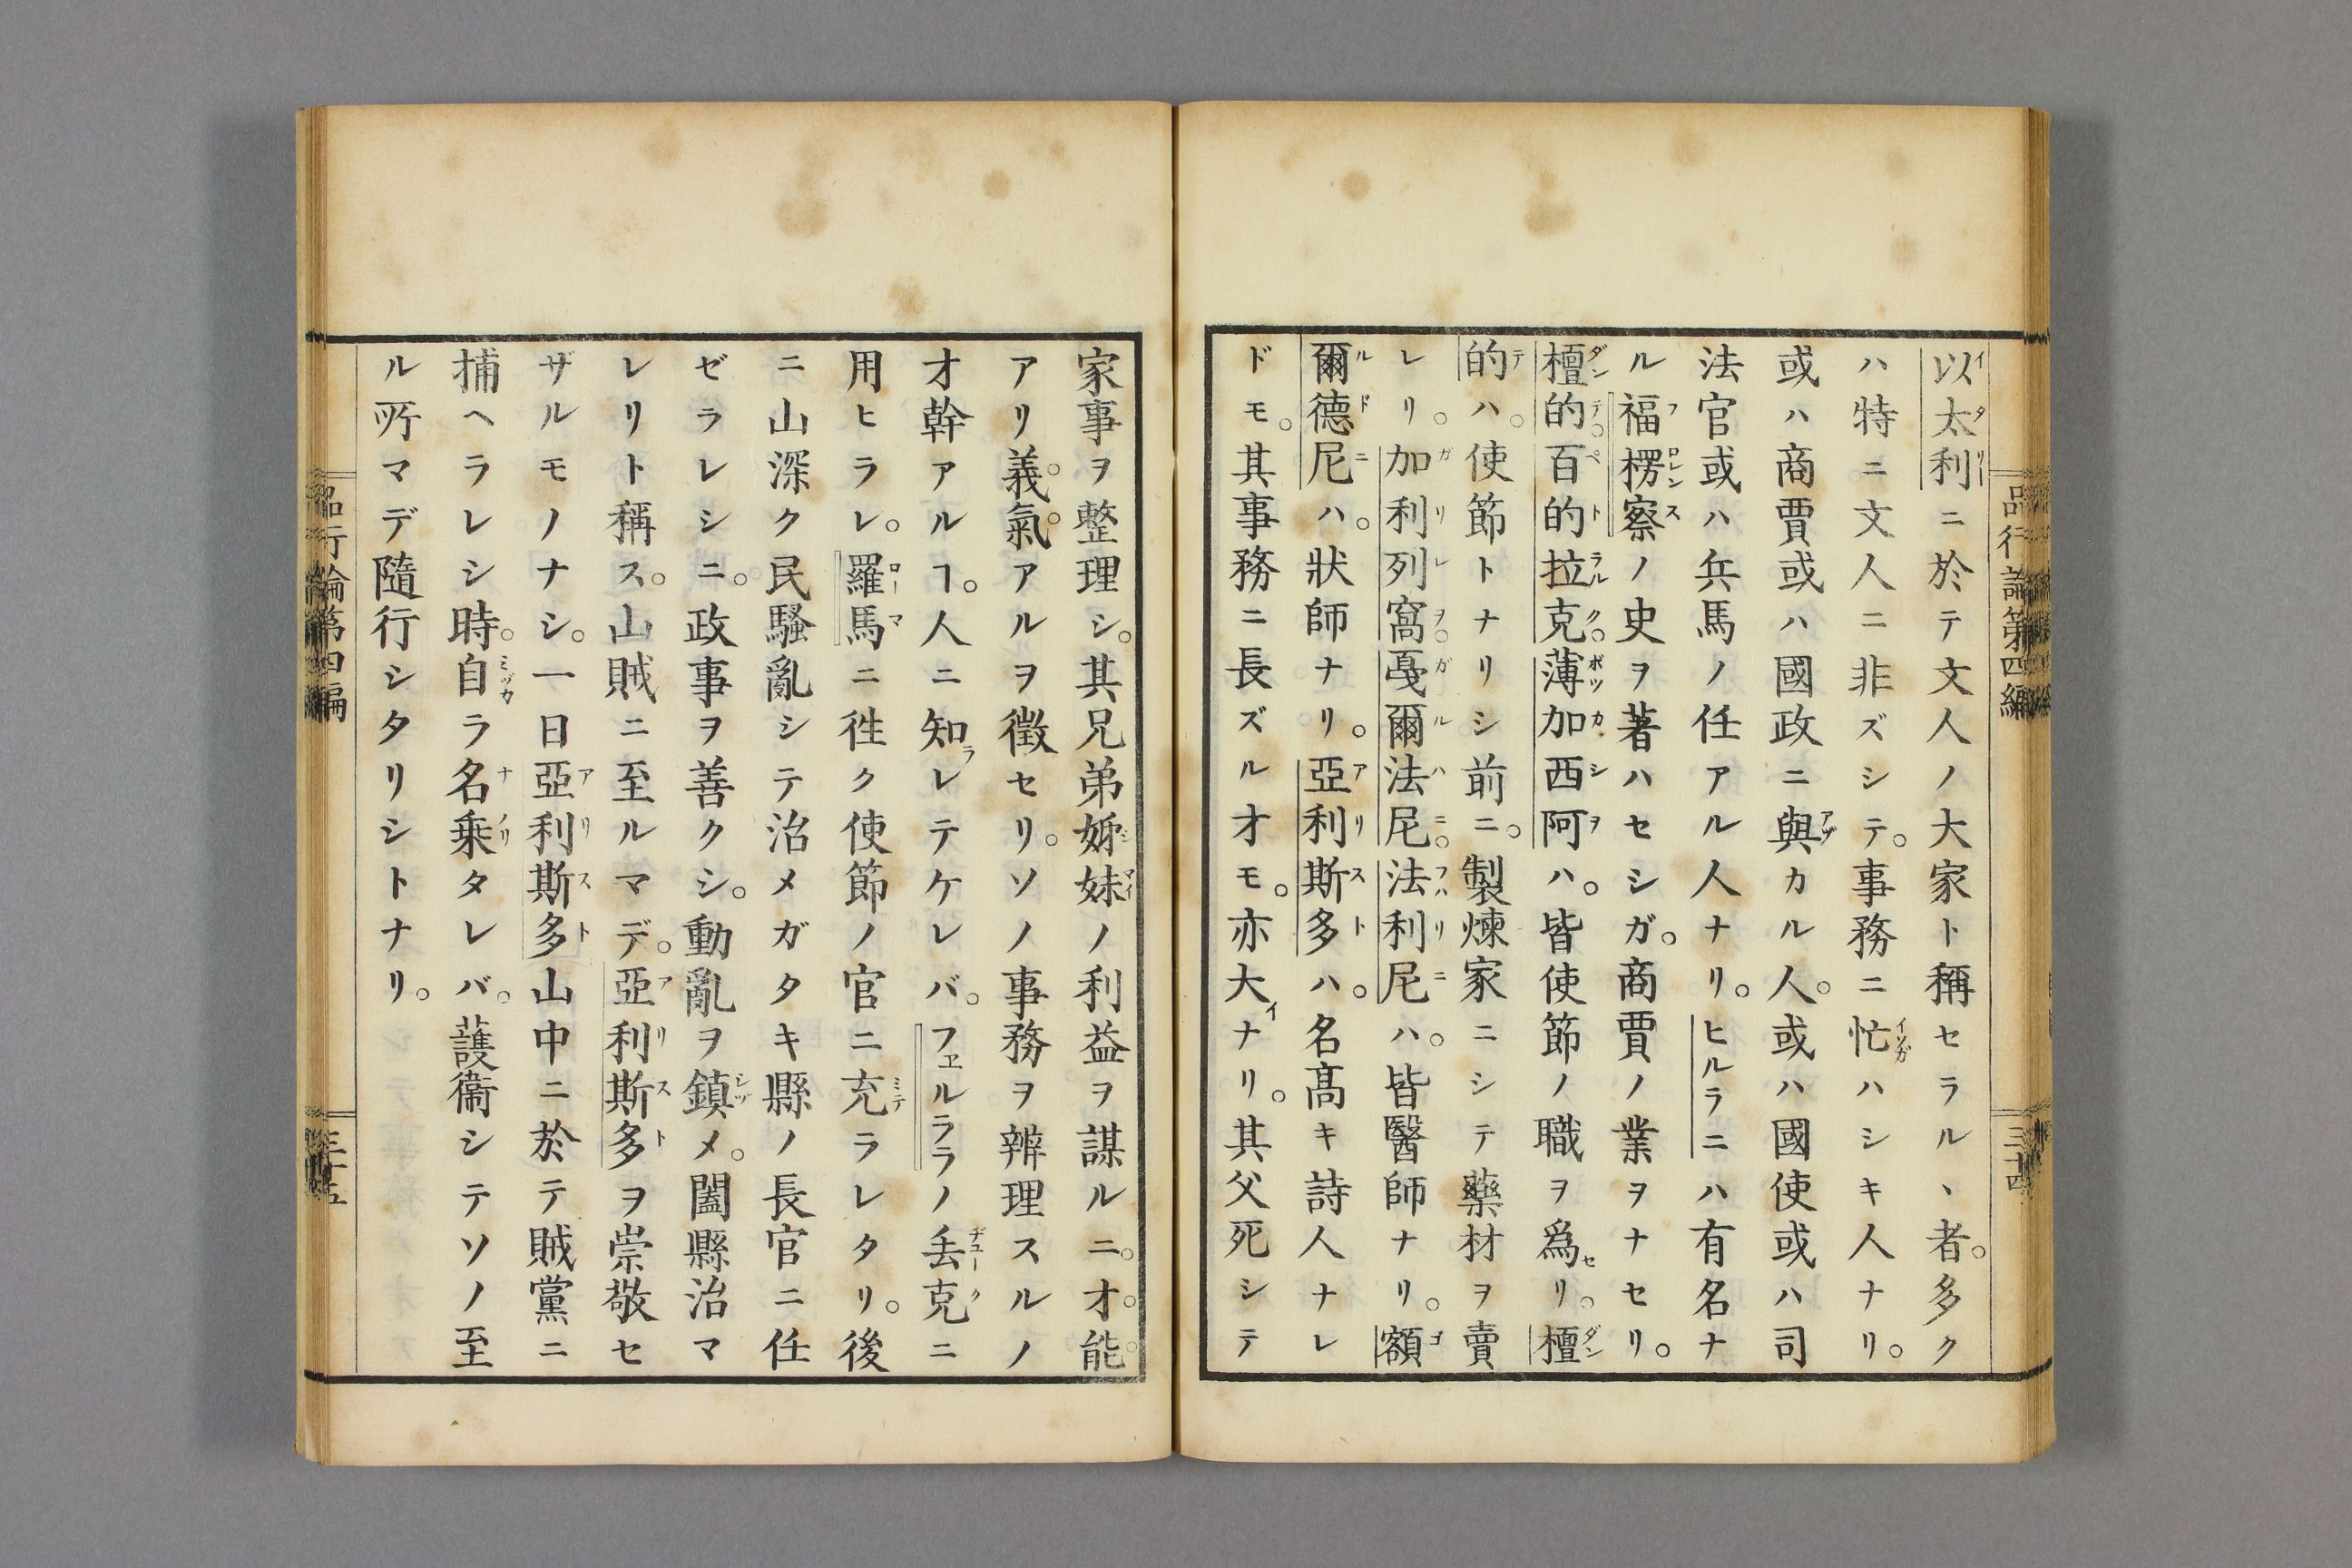 品行論第四編
三十四
以太利ニ於テ文人ノ大家ト稱セラル、者。多ク
ハ特ニ文人ニ非ズシテ。事務ニ忙ハシキ人ナリ。
或ハ商賈或ハ國政ニ與カル人。或ハ國使或ハ司
法官或ハ兵馬ノ任アル人ナリ。ヒルラニハ有名ナ
ル福楞察ノ史ヲ著ハセシガ。商賈ノ業ヲナセリ。
檀的。百的拉克。薄加西阿ハ。皆使節ノ職ヲ爲セリ。檀
的ハ。使節トナリシ前ニ。製煉家ニシテ藥材ヲ賣
レリ。加利列窩。戞爾法尼。法利尼ハ。皆醫師ナリ。額
爾德尼ハ。狀師ナリ。亞利斯多ハ。名髙キ詩人ナレ
ドモ。其事務ニ長ズル才モ。亦大イナリ。其父死シテ
家事ヲ整理シ。其兄弟姊妹ノ利益ヲ謀ルニ。才。能。
アリ義。氣。アルヲ徵セリ。ソノ事務ヲ辨理スルノ
才幹アルヿ。人ニ知ラレテケレバ。フヱルララノ丢克ニ
用ヒラレ。羅馬ニ徃ク使節ノ官ニ充ラレタリ。後
ニ山深ク民騷亂シテ治メガタキ縣ノ長官ニ任
ゼラレシニ。政事ヲ善クシ。動亂ヲ鎮メ。闔縣治マ
レリト稱ス。山賊ニ至ルマデ。亞利斯多ヲ崇敬セ
ザルモノナシ。一日亞利斯多山中ニ於テ賊黨ニ
捕ヘラレシ時。自ラ名乗タレバ。護衞シテソノ至
ル所マデ隨行シタリシトナリ。
品行論第四編
三十五